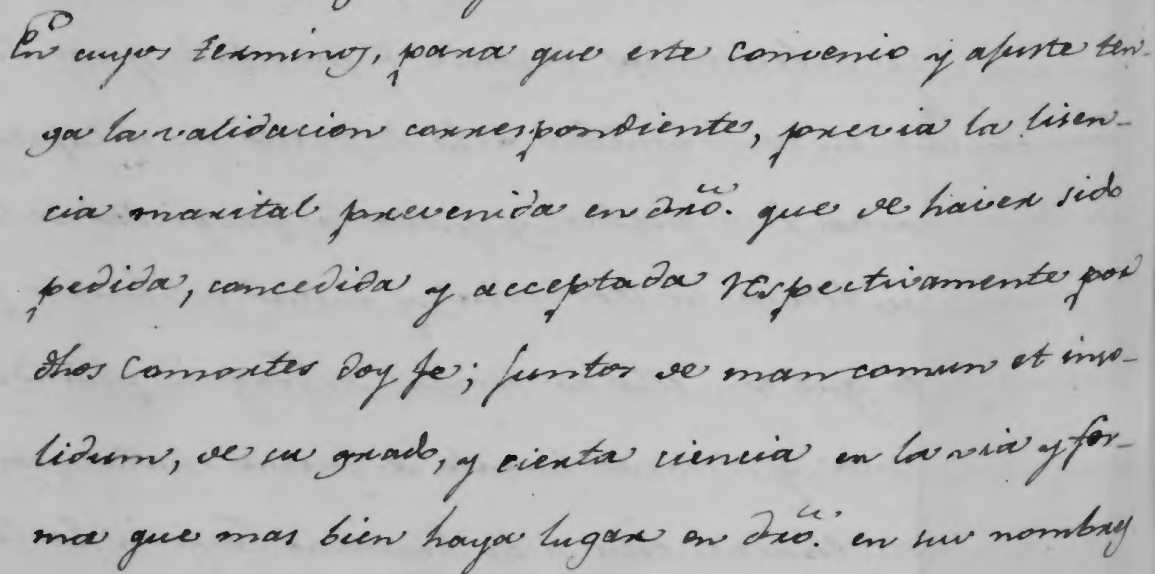 En cuyos terminos, para que este convenio y ajuste ten-
ga la validacion correspondiente, previa la lisen-
cia marital prevenida en dro. que de haver sido
pedida, concedida y acceptada respectivamente por
dhos Consortes doy fe; juntos de mancomun et inso-
lidum, de su grado, y cierta ciencia en la via y for-
ma que mas bien haya lugar en dro. en sus nombres